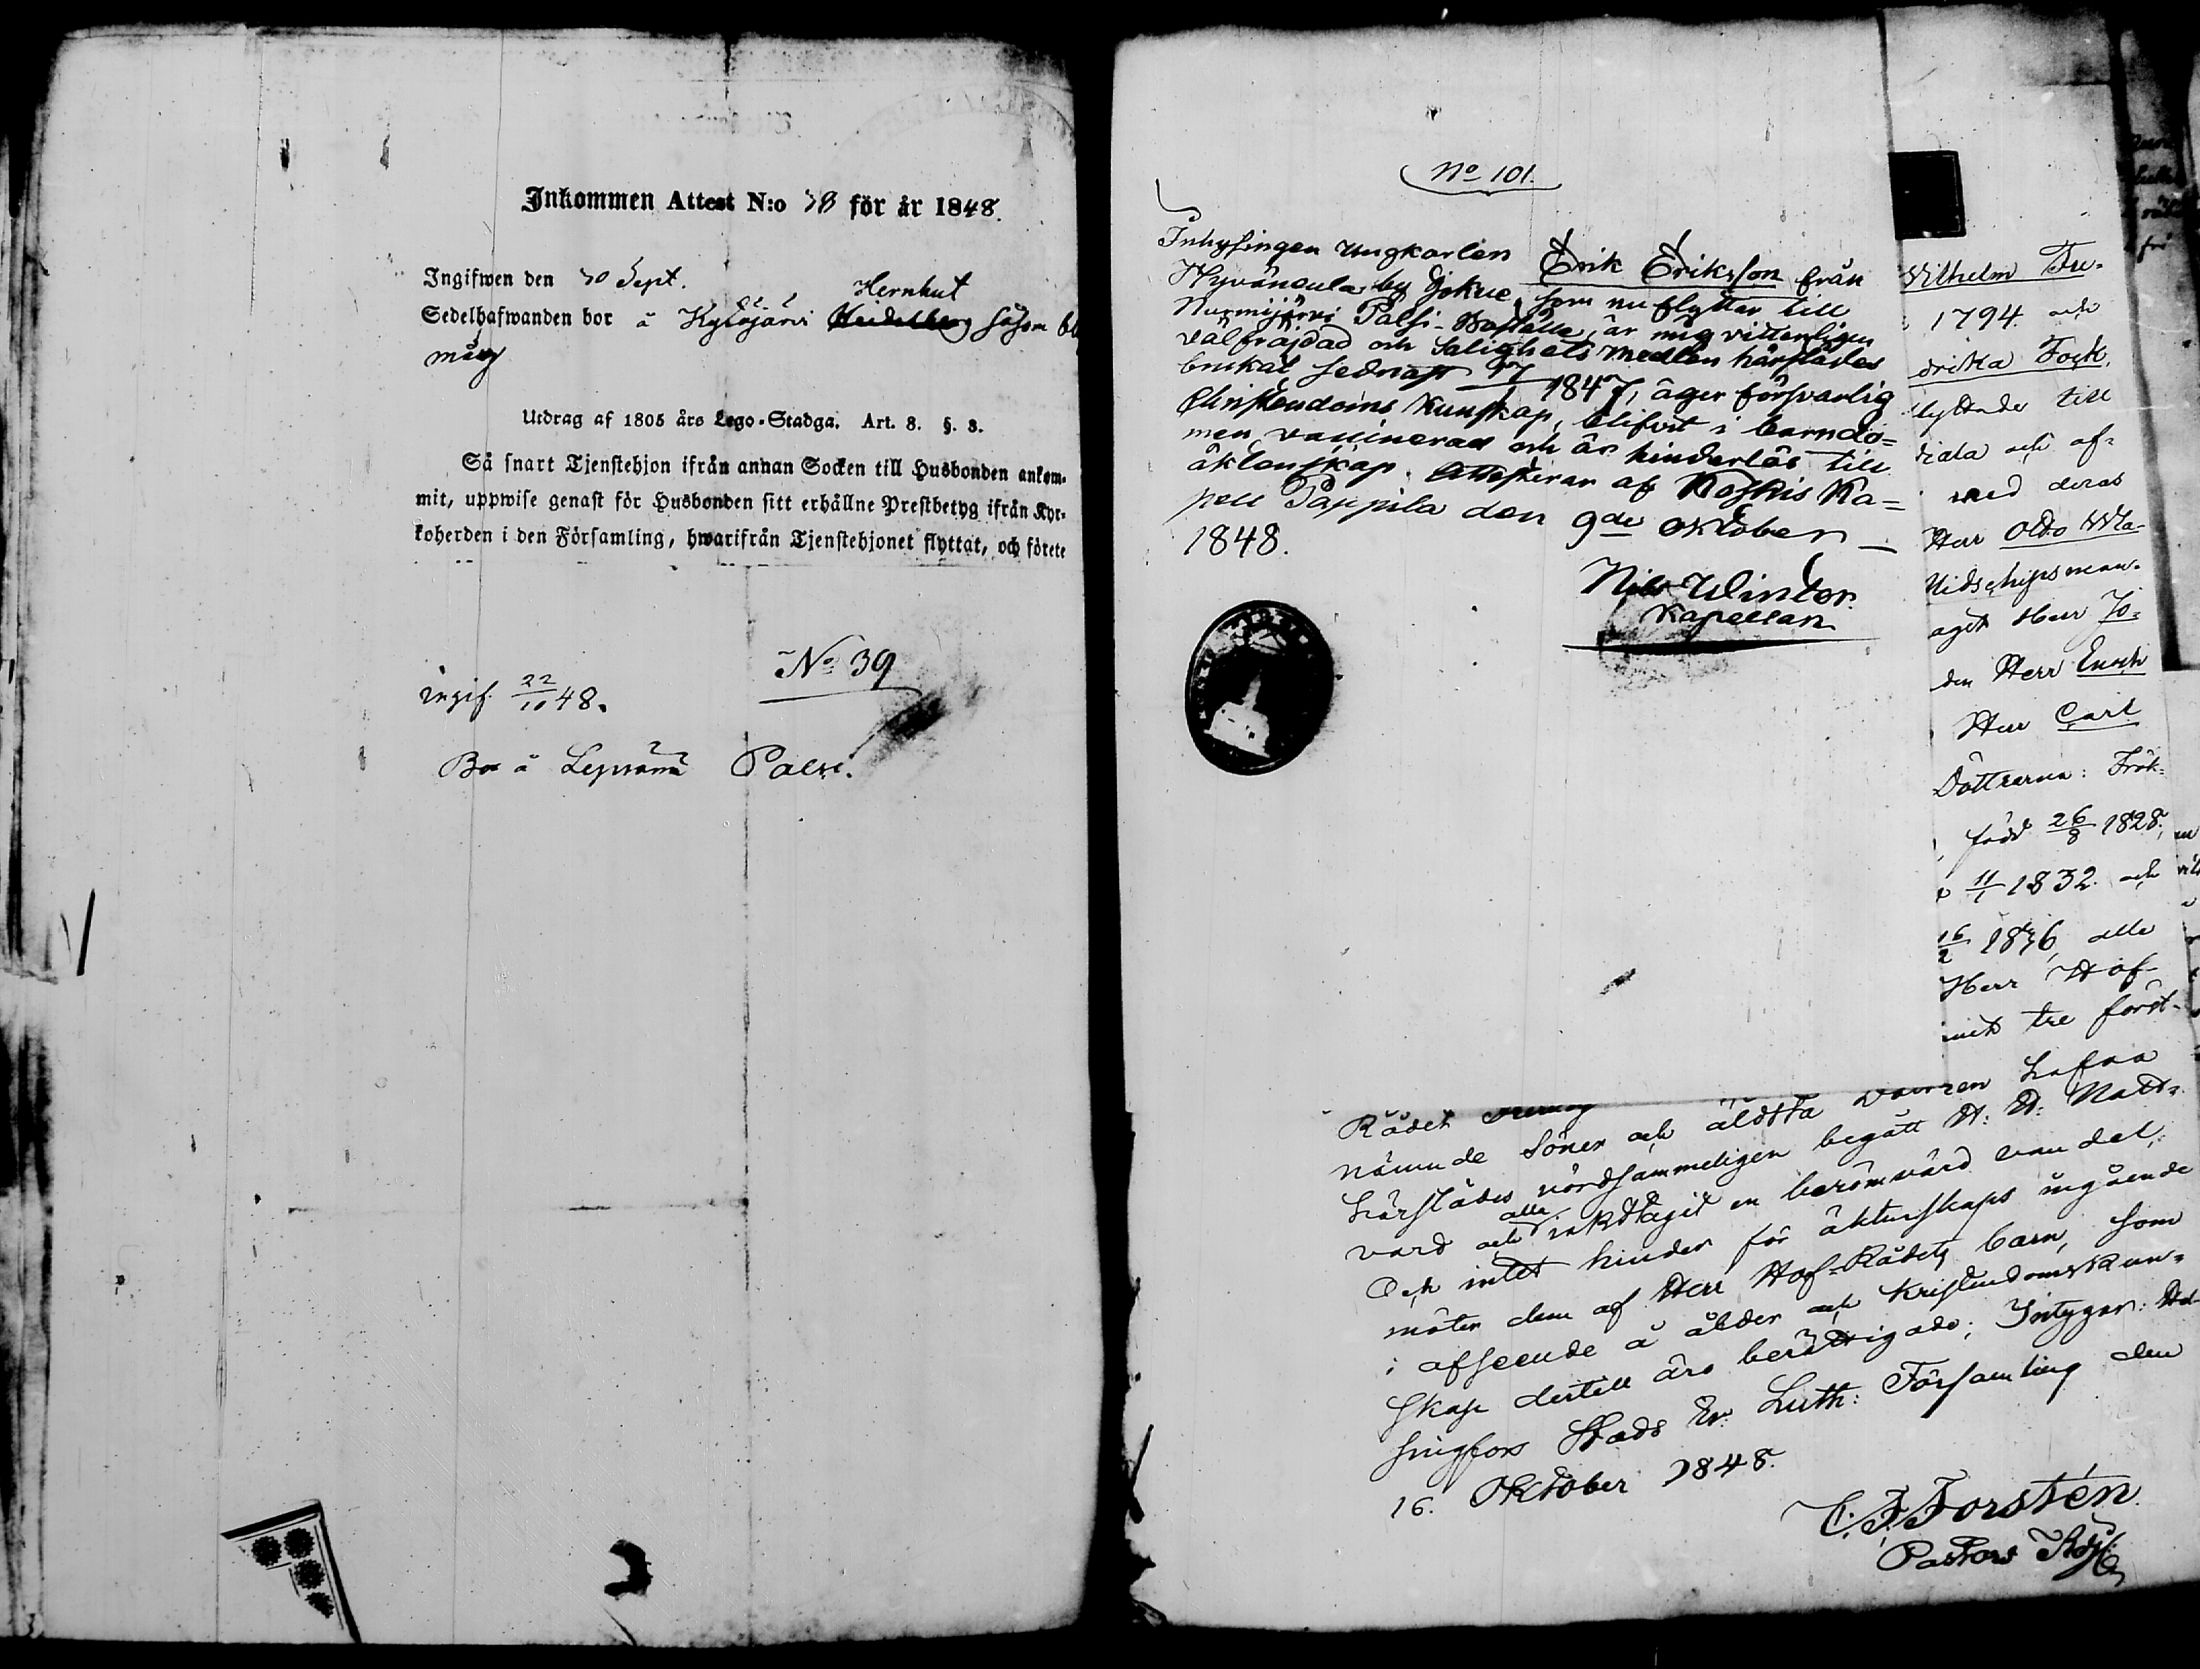 Inkommen Attest N:o 38 för år 1848.
Ingifwen den 30 Sept.
Hernhut
Sedelhafwanden bor å Kytöjärvi såsom
måg
Utdrag af 1805 års Lego-Stadga. Art. 8. §. 3.
Så snart Tjenstehjon ifrån annan Socken till Husbonden ankom-
mit, uppwise genast för Husbonden sitt erhållne Prestbetyg ifrån Kyr-
koherden i den Församling, hwarifrån Tjenstehjonet flyttat, och förete
No 39
ingif. 22/10 48.
Bor å Palsi.
No 101.
Inhysingen Ungkarlen Erik Eriksson från
Hyvänoula by som nu flyttar till
Nurmijärvi Palsi-Boställe, är mig vitterligen
välfräjdad och Salighets medlen härstädes
brukat sednast 1847, äger försvarlig
Christendoms Kunskap, blifvit i barndo=
men vaccinerad och är hinderlös till
äktenskap. Attesterar af Koskis Ka=
pell Pappila den 9de Oktober
1848.
Nils Winter.
Kapellan
Wilhelm Fre-
1794 och
drika Fock,
flyttade till
och af-
med deras
Herr Otto Wla-
Midschipsman-
aget Herr Jo-
den Herr Enoch
Herr Carl
Döttrarna: Frök-
född 26/8 1828,
11/1 1832 och
16/2 1836, alla
Herr Hof-
tre först-
Rådet
nämnde Söner och äldsta hafva
härstädes vördsammeligen begått H: H: Natt-
alla
vard och iakttagit en berömvärd vandel;
Och intet hinder för äktenskaps ingående
möter dem af Herr Hof-Rådets barn, som
i afseende å ålder och Kristendomskun-
skap dertill äro berättigade; Intygar: Hel-
singfors Stads Ev: Luth: Församling den
16. Oktober 1848.
C. F. Forstén
Pastors